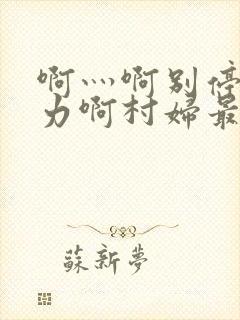 啊灬啊别停
力啊村婦最
蘇新夢